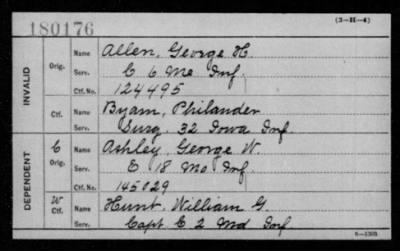 180176
(3-H-4)
INVALID
Orig.
Name Allen, George H.
Serv. C 6 Me Inf.
Ctf. No. 124495
Ctf.
Name Byam, Philander
Serv. Surg. 32 Iowa Inf
DEPENDENT
C
Orig.
Name Ashley, George W.
Serv. E 18 Mo Inf.
Ctf. No. 145029
W
Ctf.
Name Hunt, William G.
Serv. Capt E 2 Md Inf